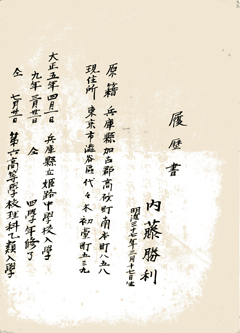 履歴書
内藤勝利
明治三十七年十二月十七日生
原籍 兵庫縣加古郡高砂町南本町八五八
現住所 東京市澁谷區代々木初臺町五三九
大正五年四月一日 兵庫縣立姫路中學校入學
九年三月廿一日 仝 四學年修了
仝 七月廿一日 第六高等學校理科乙類入學